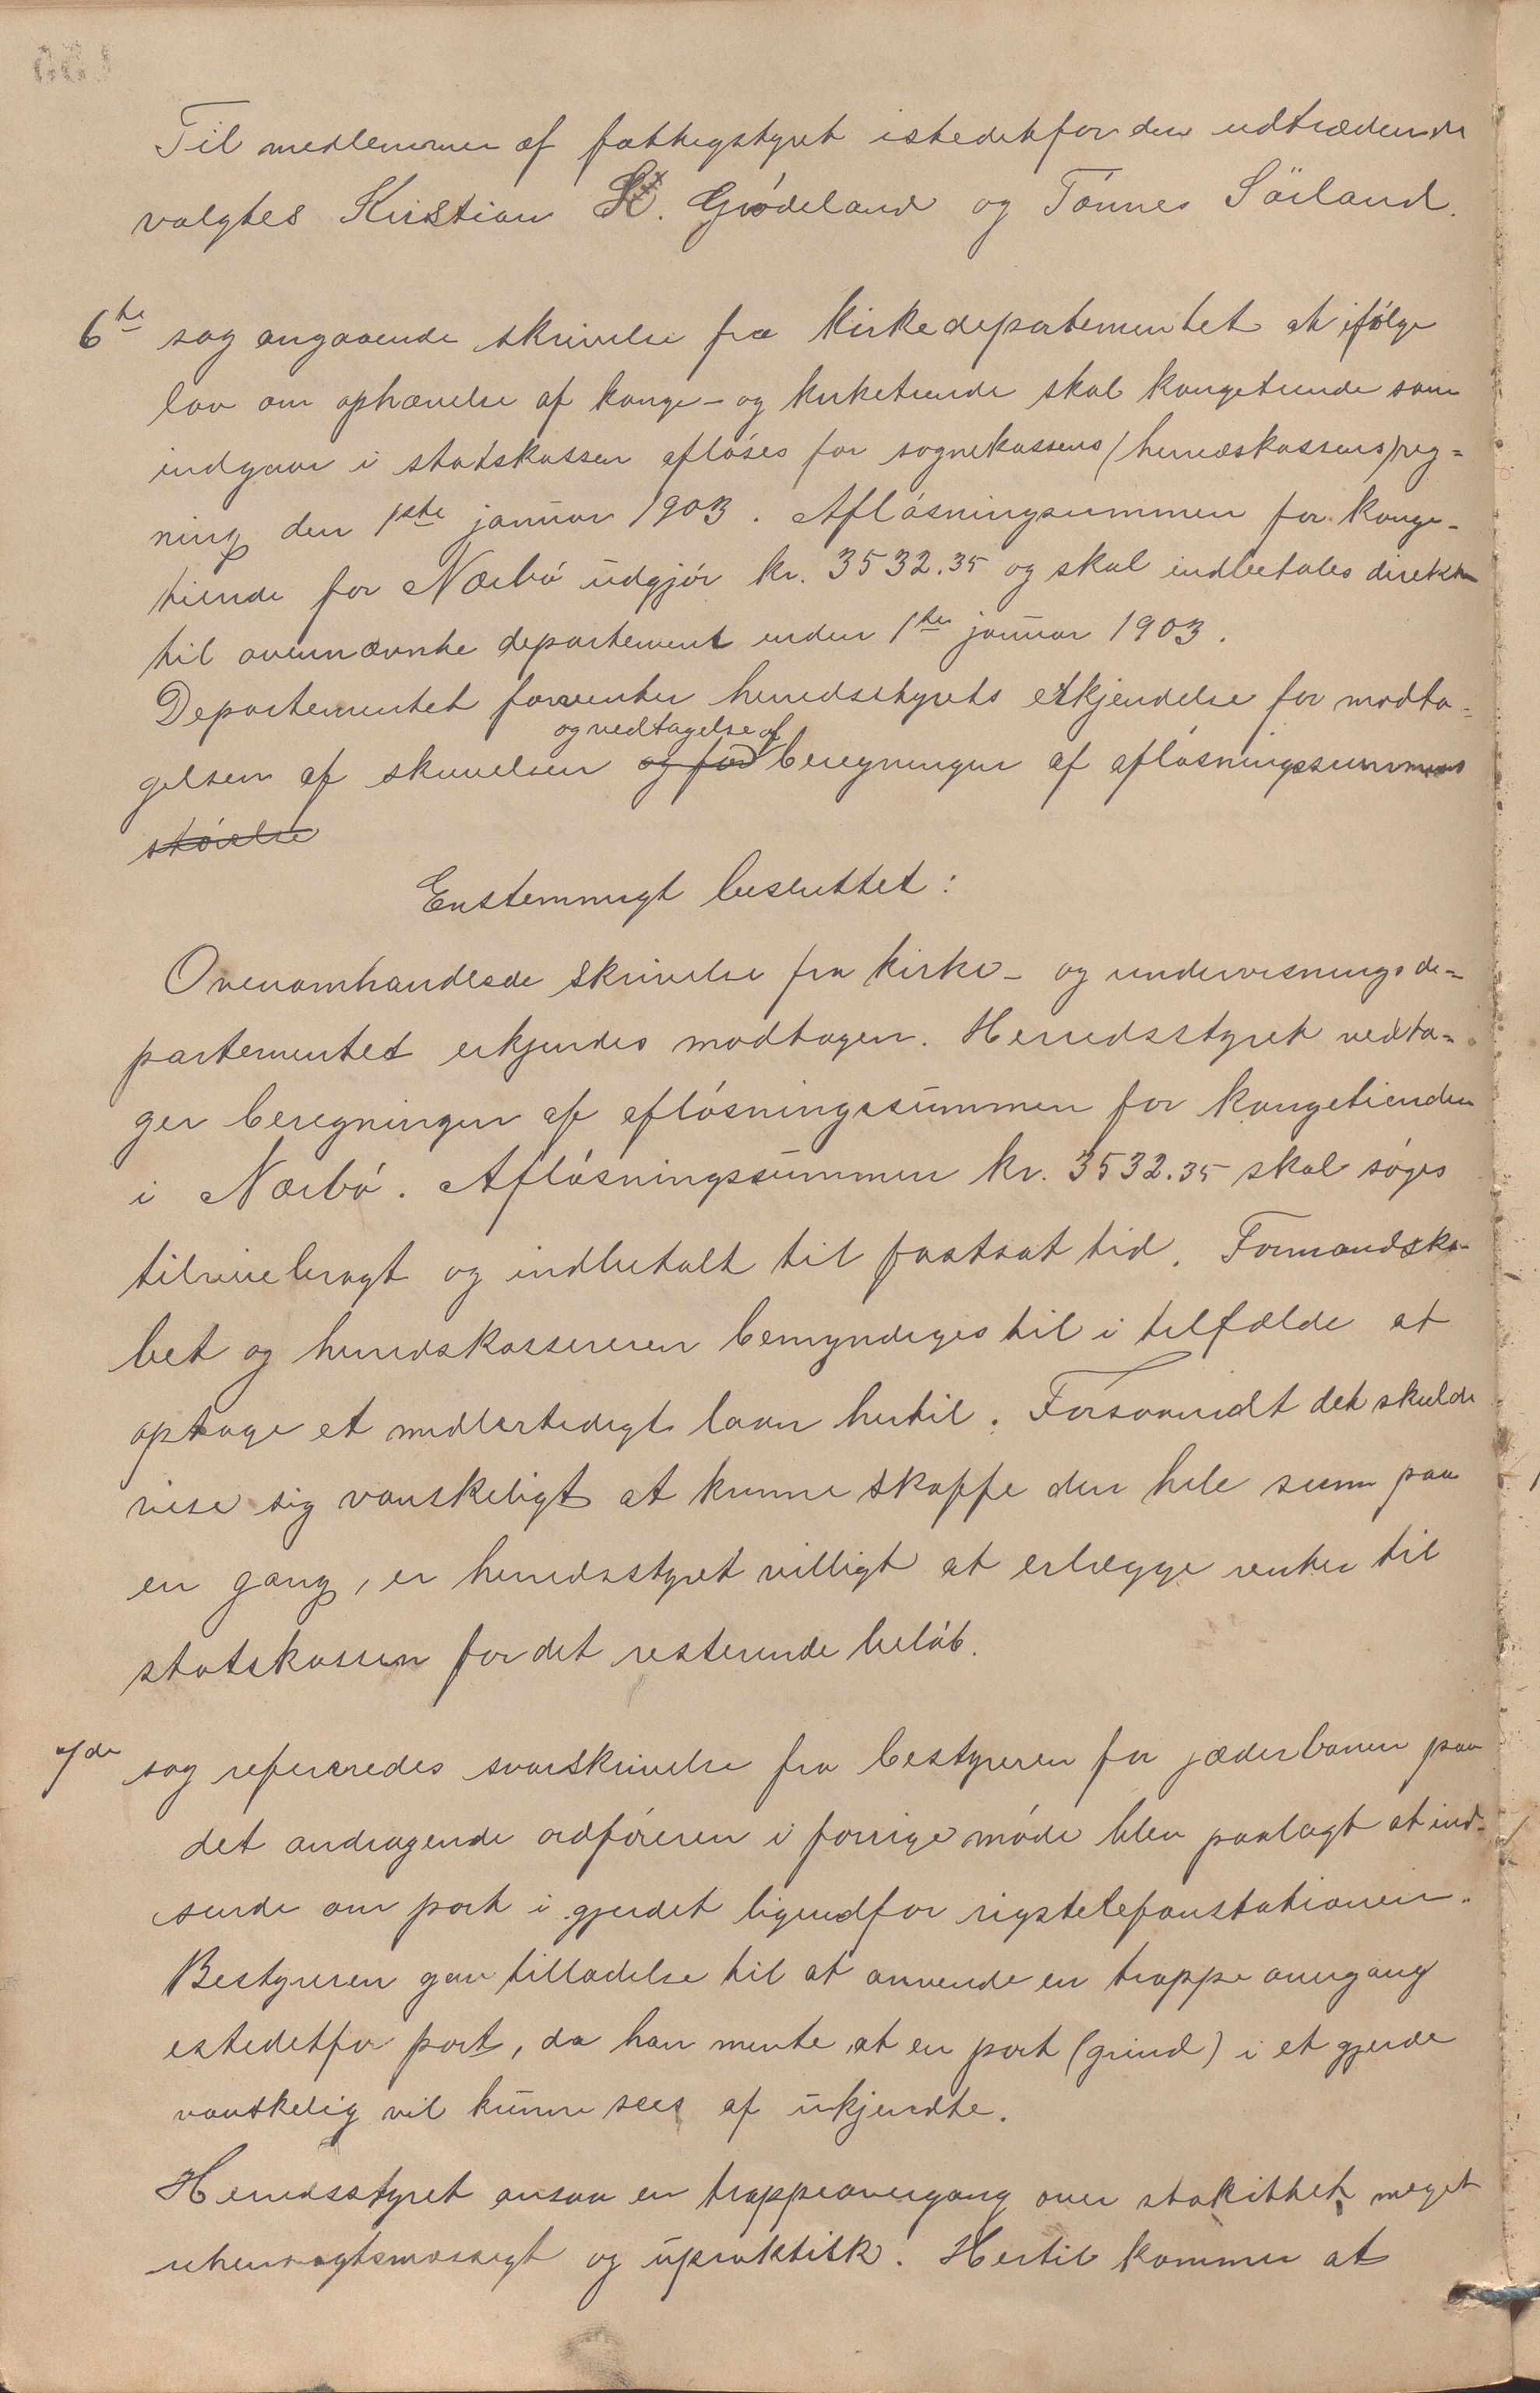 Til medlemmer af fattigstyret istedetfor den udtrædende
valgtes Kristian K. Grödeland og Tönnes Söiland.
6te sag angaaende skrivelse fra Kirkedepartementet at ifölge
lov om ophævelse af konge- og kirketiende skal kongetiende som
indgaar i statskassen aflöses for sognekassens (herredskassens) reg=
ning den 1ste januar 1903. Aflösningsummen for konge-
tiende for Nærbö udgjör kr. 3532.35 og skal indbetales direkte
til ovennævnte departement inden 1te januar 1903.
Departementet forventer herredsstyrets erkjendelse for modta=
og vedtagelse af
gelsen af skrivelsen og for beregningen af aflösningssummens
störelse
Enstemmigt besluttet:
Ovenomhandlede skrivelse fra kirke- og undervisningsde=
partementet erkjendes modtagen. Herredsstyret vedta=
ger beregningen af aflösningssummen for kongetienden
i Nærbö. Aflösningssummen kr. 3532.35 skal söges
tilveiebragt og indbetalt til fastsat tid. Formandska-
bet og herredskassereren bemyndiges til i tilfælde at
optage et midlertidigt laan hertil. Forsaavidt det skulde
vise sig vanskeligt at kunne skaffe den hele sum paa
en gang, er herredsstyret villigt at erlægge renter til
statskassen for det resterende belöb.
7de sag refereredes svarskrivelse fra bestyreren for jæderbanen paa
det andragende ordföreren i forrige möde blev paalagt at ind-
sende om port i gjerdet ligeudfor rigstelefonstationen.
Bestyreren gav tilladelse til at anvende en trappeovergang
istedetfor port, da han mente at en port (grind) i et gjerde
vanskelig vil kunne sees af ukjendte.
Herredsstyret ansaa en trappeovergang over stakittet meget
uhensigtsmæssigt og upraktisk. Hertil kommer at